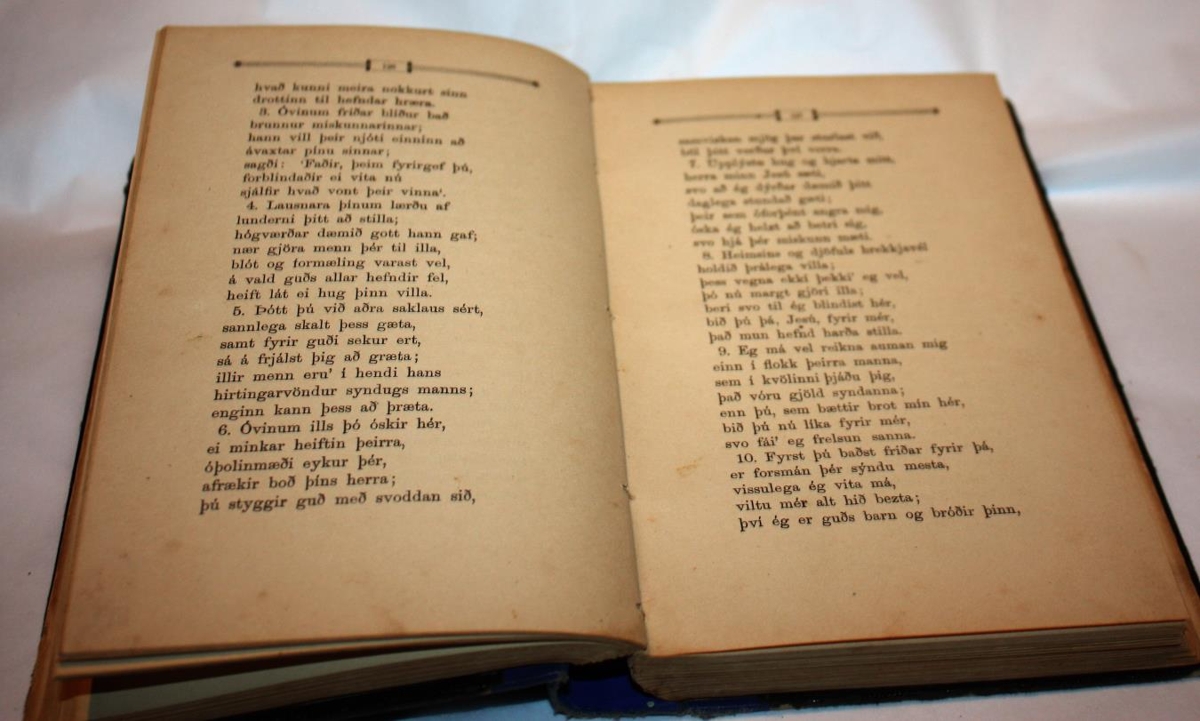 hvað kunni meira nokkurt sinn
drottinn til hefndar hræra.
3. Óvinum friðar blíður bað
brunnur miskunnarinnar;
hann vill þeir njóti einninn að
ávaxtar pínu sinnar;
sagði: 'Faðir, þeim fyrirgef þú,
forblindaðir ei vita nú
sjálfir hvað vont þeir vinna'.
4. Lausnara þínum lærðu af
lunderni þitt að stilla;
hógværðar dæmið gott hann gaf;
nær gjöra menn þér til illa,
blót og formæling varast vel,
á vald guðs allar hefndir fel,
heift lát ei hug þinn villa.
5. Þótt þú við aðra saklaus sért,
sannlega skalt þess gæta,
samt fyrir guði sekur ert,
sá á frjálst þig að græta;
illir menn eru' í hendi hans
hirtingarvöndur syndugs manns;
enginn kann þess að þræta.
6. Óvinum ills þó óskir hér,
ei minkar heiftin þeirra,
óþolinmæði eykur þér,
afrækir boð þíns herra;
þú styggir guð með svoddan sið,
mjög þar við,
þitt verður því verra.
7. Upplýstu hug og hjarta mitt,
herra minn Jesú sæti,
svo að ég dýrðar dæmið þitt
daglega stundað gæti;
þeir sem óforþént angra mig,
óska ég helzt að betri sig,
svo hjá þér miskunn mæti.
8. Heimsins og djöfuls brekkjavél
holdið þrálega villa;
þess vegna ekki þekki' eg vel,
þó nú margt gjöri illa;
beri svo til ég blindist hér,
bið þú þá, Jesú, fyrir mér,
það mun hefnd harða stilla.
9. Eg má vel reikna auman mig
einn í flokk þeirra manna,
sem í kvölinni þjáðu þig,
það vóru gjöld syndanna;
enn þú, sem bættir brot mín hér,
bið þú nú líka fyrir mér,
svo fái' eg frelsun sanna.
10. Fyrst þú baðst friðar fyrir þá,
er forsmán þér sýndu mesta,
vissulega ég vita má,
viltu mér alt hið bezta;
því ég er guðs barn og bróðir þinn,